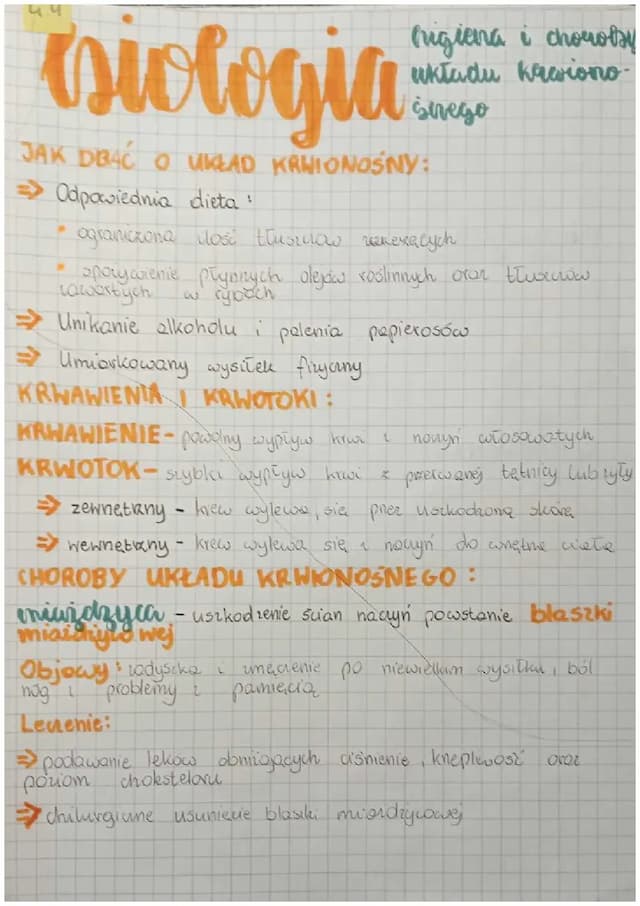 4 4
biologia
higiena i choroby
układu krwiono-
śnego
JAK DBAĆ O UKŁAD KRWIONOŚNY:
⇒ Odpowiednia dieta:
• ograniczona ilość tłuszczów zwierzęcych
• spożywienie płynnych olejów roślinnych oraz tłuszczów
zawartych w rybach
⇒ Unikanie alkoholu i palenia papierosów
⇒ Umiarkowany wysiłek fizyczny
KRWAWIENIA I KRWOTOKI:
KRWAWIENIE - powolny wypływ krwi z naczyń włosowatych
KRWOTOK - szybki wypływ krwi z przerwanej tętnicy lub żyły
⇒ zewnętrzny - krew wylewa się przez uszkodzoną skórę
⇒ wewnętrzny - krew wylewa się z naczyń do wnętrza ciała
CHOROBY UKŁADU KRWIONOŚNEGO:
miażdżyca - uszkodzenie ścian naczyń powstanie blaszki
miażdżycowej
Objawy: zadyszka i zmęczenie po niewielkim wysiłku, ból
nóg i problemy z pamięcią
Leczenie:
⇒ podawanie leków obniżających ciśnienie, krzepliwość oraz
poziom cholesterolu
⇒ chirurgiczne usunięcie blaszki miażdżycowej